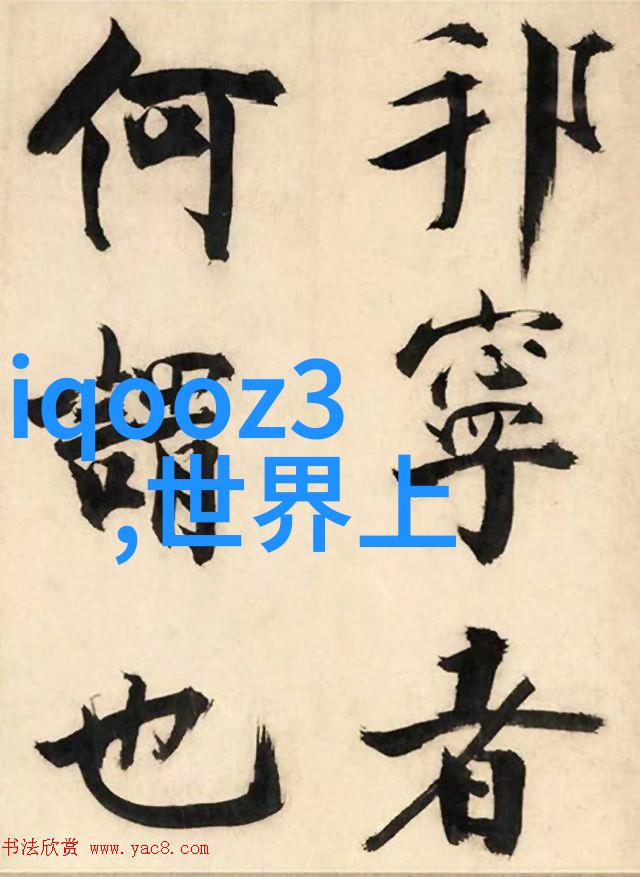 邦寧者
何謂也
iqooz3
,世界上
书法欣赏 www.yac8.com